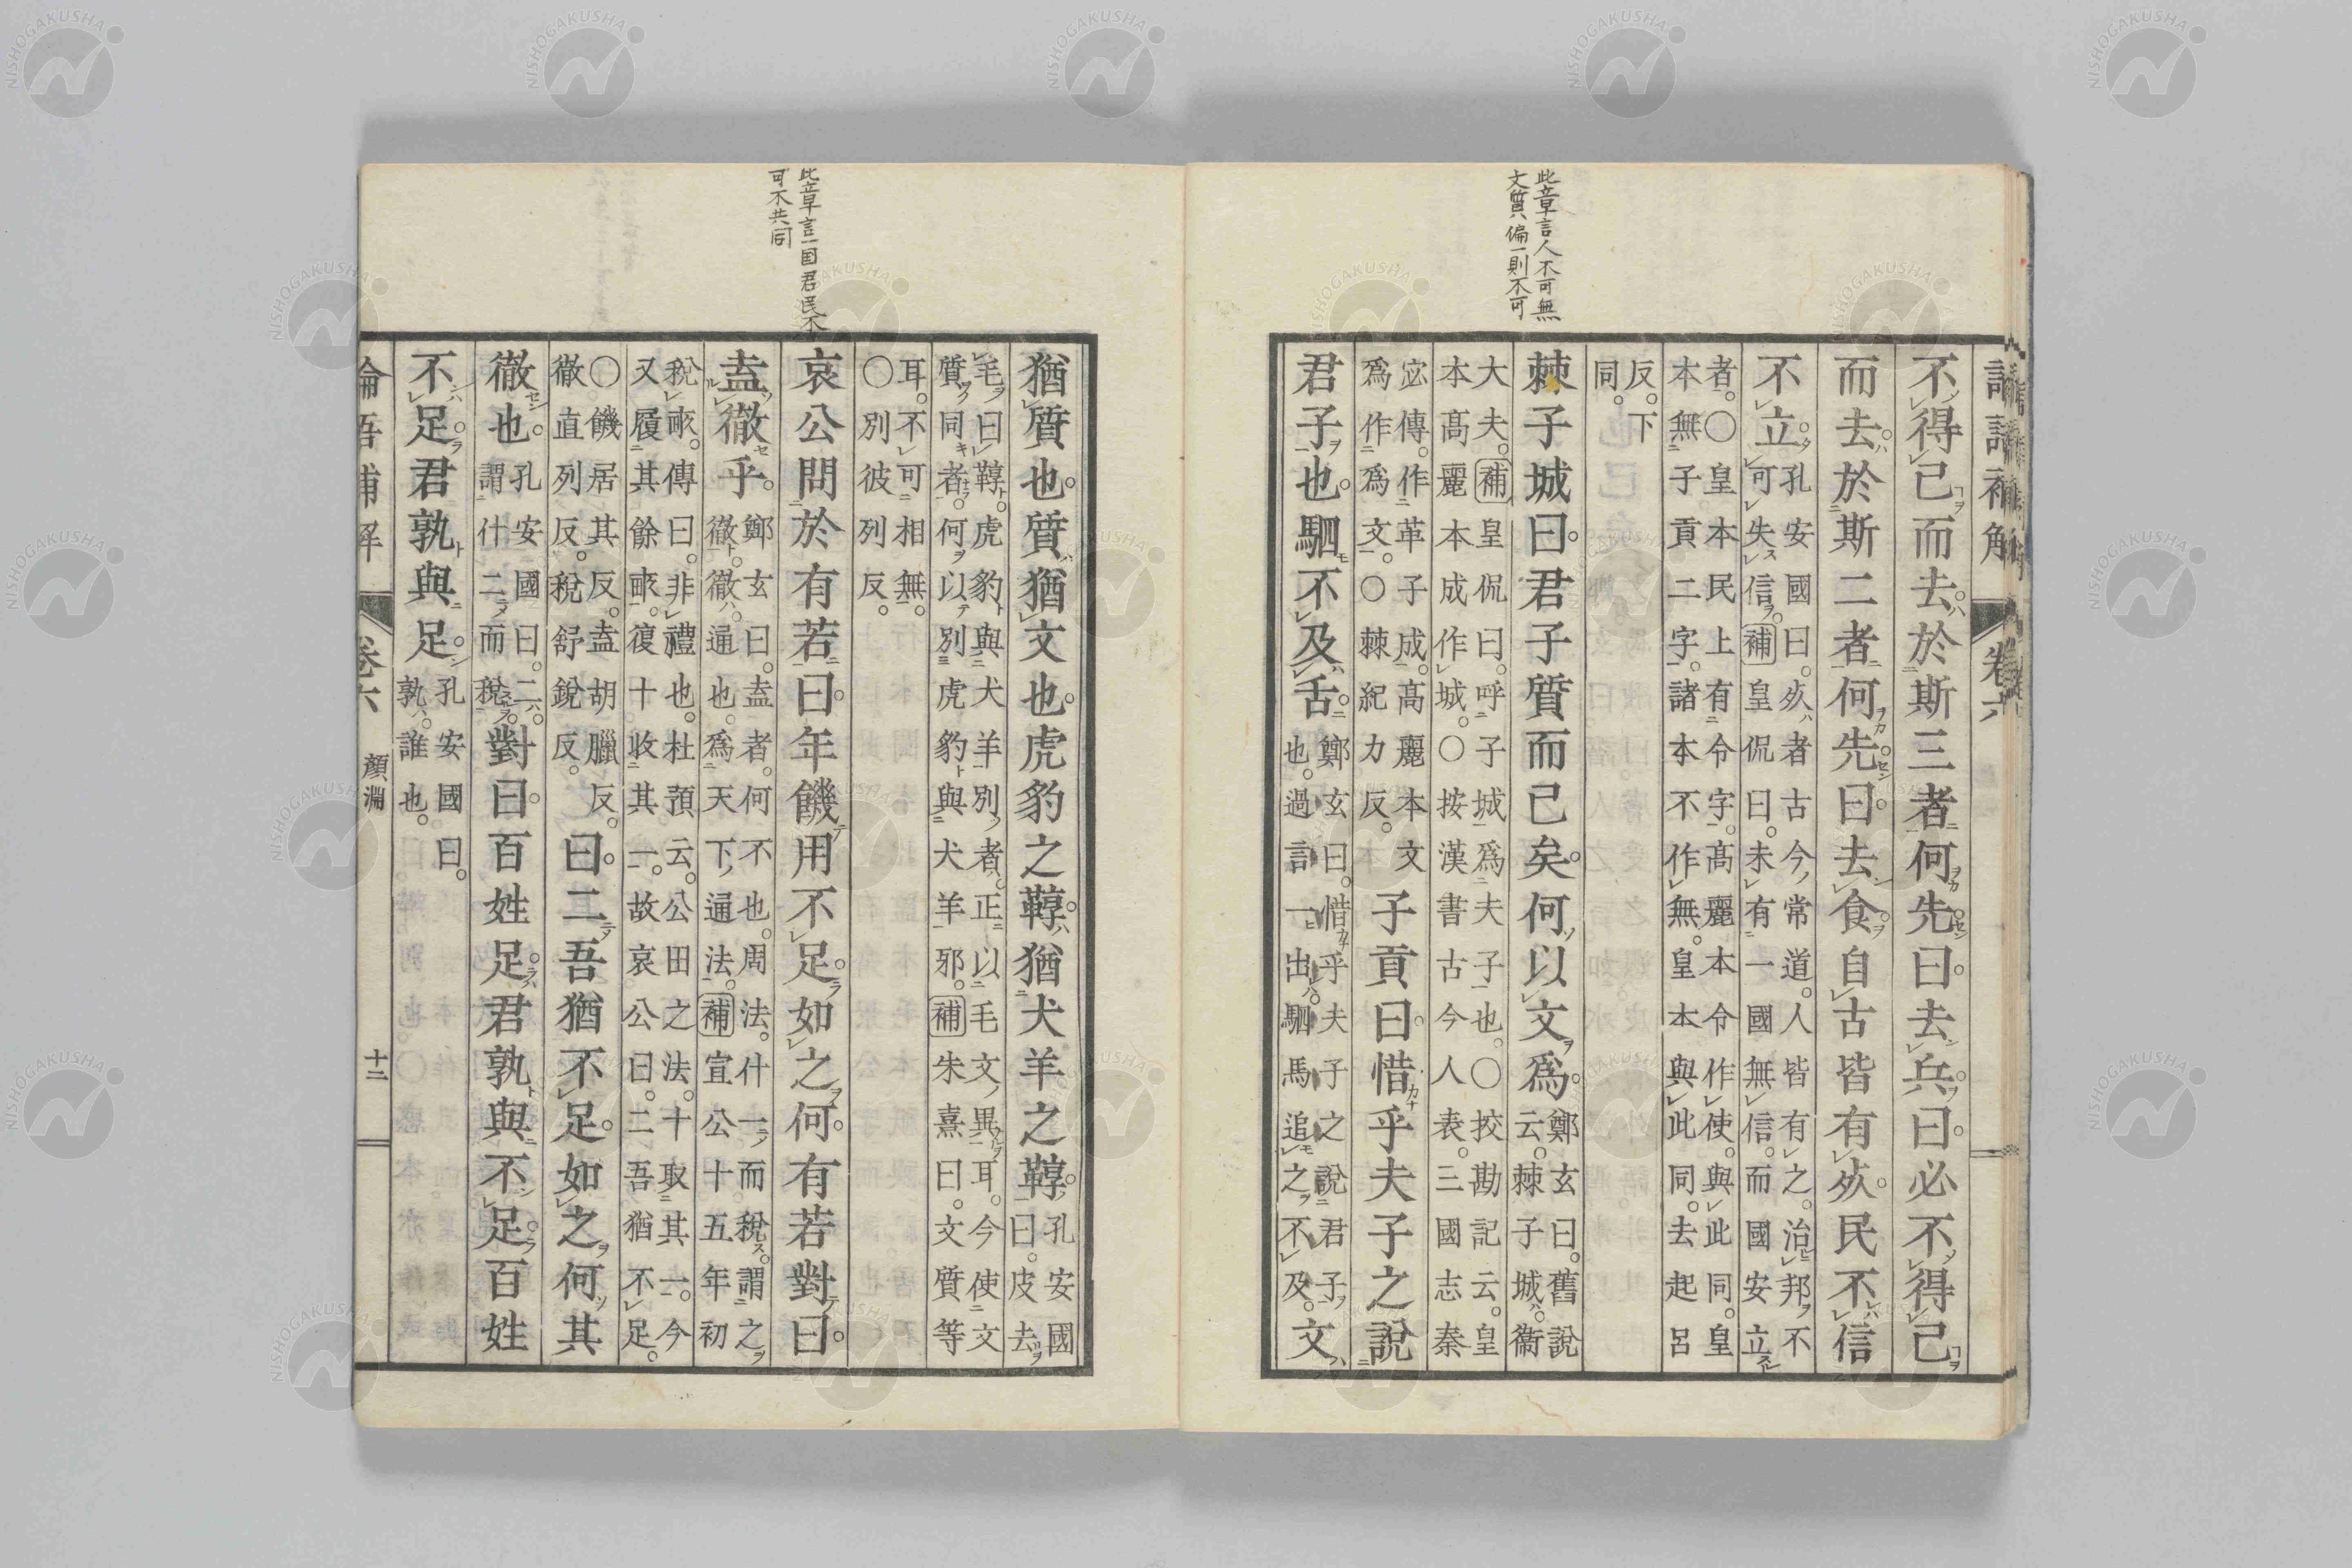 論語補解 卷六
此章言人不可無
文質偏一則不可
不得已而去於斯三者何先曰去兵曰必不得已
而去於斯二者何先曰去食自古皆有死民不信
不立
孔安國曰。死者古今常道。人皆有之。治邦不
可失信。補皇侃曰。未有一國無信。而國安立
者。〇皇本民上有令字。高麗本令作使。與此同。皇
本無子貢二字。諸本不作無。皇本與此同。去起呂
反。下
同。
棘子城曰。君子質而已矣。何以文爲。
鄭玄曰。舊說
云。棘子城。衞
大夫。補皇侃曰。呼子城爲夫子也。〇挍勘記云。皇
本高麗本成作城。〇按漢書古今人表。三國志秦
宓傳。作革子成。高麗本文
爲作爲文。〇棘紀力反。
子貢曰。惜乎夫子之說
君子也。駟不及舌。
鄭玄曰。惜乎夫子之說君子
也。過言一出。駟馬追之不及。
文
猶質也。質猶文也。虎豹之鞟。猶犬羊之鞟。
孔安國
曰。皮去
毛曰鞟。虎豹與犬羊別者。正以毛文異耳。今使文
質同者。何以別虎豹與犬羊邪。補朱熹曰。文質等
耳。不可相無。
〇別彼列反。
此章言一国君民不
可不共同
哀公問於有若曰。年饑用不足。如之何。有若對曰。
盍徹乎。
鄭玄曰。盍者。何不也。周法。什一而稅。謂之
徹。徹。通也。爲天下通法。補宣公十五年初
稅畝。傳曰。非禮也。杜預云。公田之法。十取其一。今
又履其餘畝。復十收其一。故哀公曰。二吾猶不足。
〇饑居其反。盍胡臘反。
徹直列反。稅舒銳反。
曰。二吾猶不足。如之何其
徹也。
孔安國曰。二。
謂什二而稅。
對曰。百姓足。君孰與不足。百姓
不足。君孰與足。
孔安國曰。
孰。誰也。
論語補解 卷六 顏淵 十二